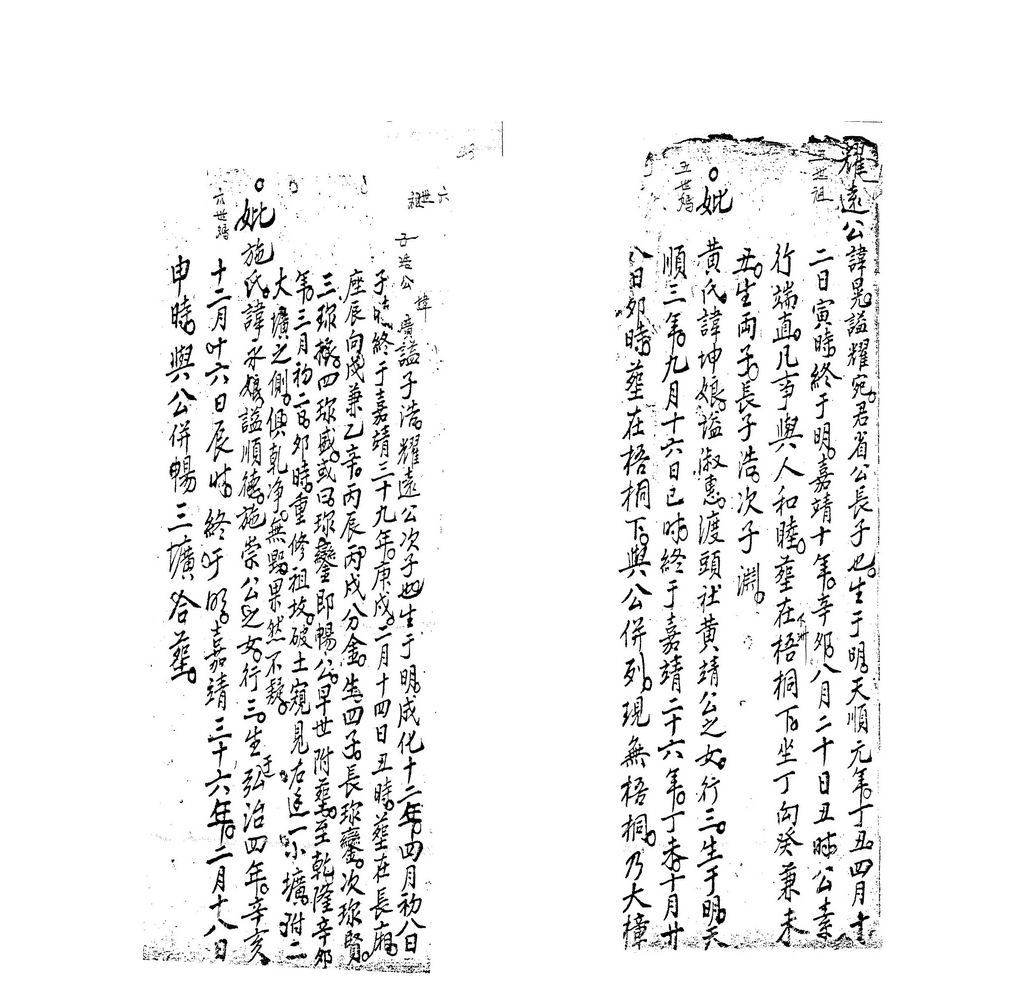 耀遠公諱晃。諡耀宛。君省公長子也。生于明。天順元年。丁丑。四月十
五世祖
二日寅時。終于明。嘉靖十年。辛卯。八月二十日丑時。公素
行端直。凡事與人和睦。塟在梧桐下。坐丁向癸兼未
丑。生兩子。長子浩。次子淵。
妣黃氏諱坤娘。諡淑惠。渡頭社黃靖公之女。行三。生于明。天
五世媽
順三年。九月十六日巳時。終于嘉靖二十六年。丁未。十月廿
八日卯時。塟在梧桐下。與公併列。現無梧桐。乃大樟
六世祖
子浩公諱廣諡子浩。耀遠公次子也。生于明。成化十二年。四月初八日
子時。終于嘉靖三十九年。庚戌。二月十四日丑時。塟在長廂。
座辰向戌兼乙辛。丙辰丙戌分金。生四子。長琭鑾。次琭賢。
三琭椽。四琭盛。或曰琭鑾即暢公。早世附塟。至乾隆辛卯
年。三月初二日。卯時。重修祖坟。破土窺見右邊一小壙。附二
大壙之側。俱乾净。無點。果然不疑。
妣施氏。諱永娘。諡順德。施崇公之女。行三。生于弘治四年。辛亥
六世媽
十二月廿六日辰時。終于明。嘉靖三十六年。二月十八日
申時。與公併暢三壙合塟。